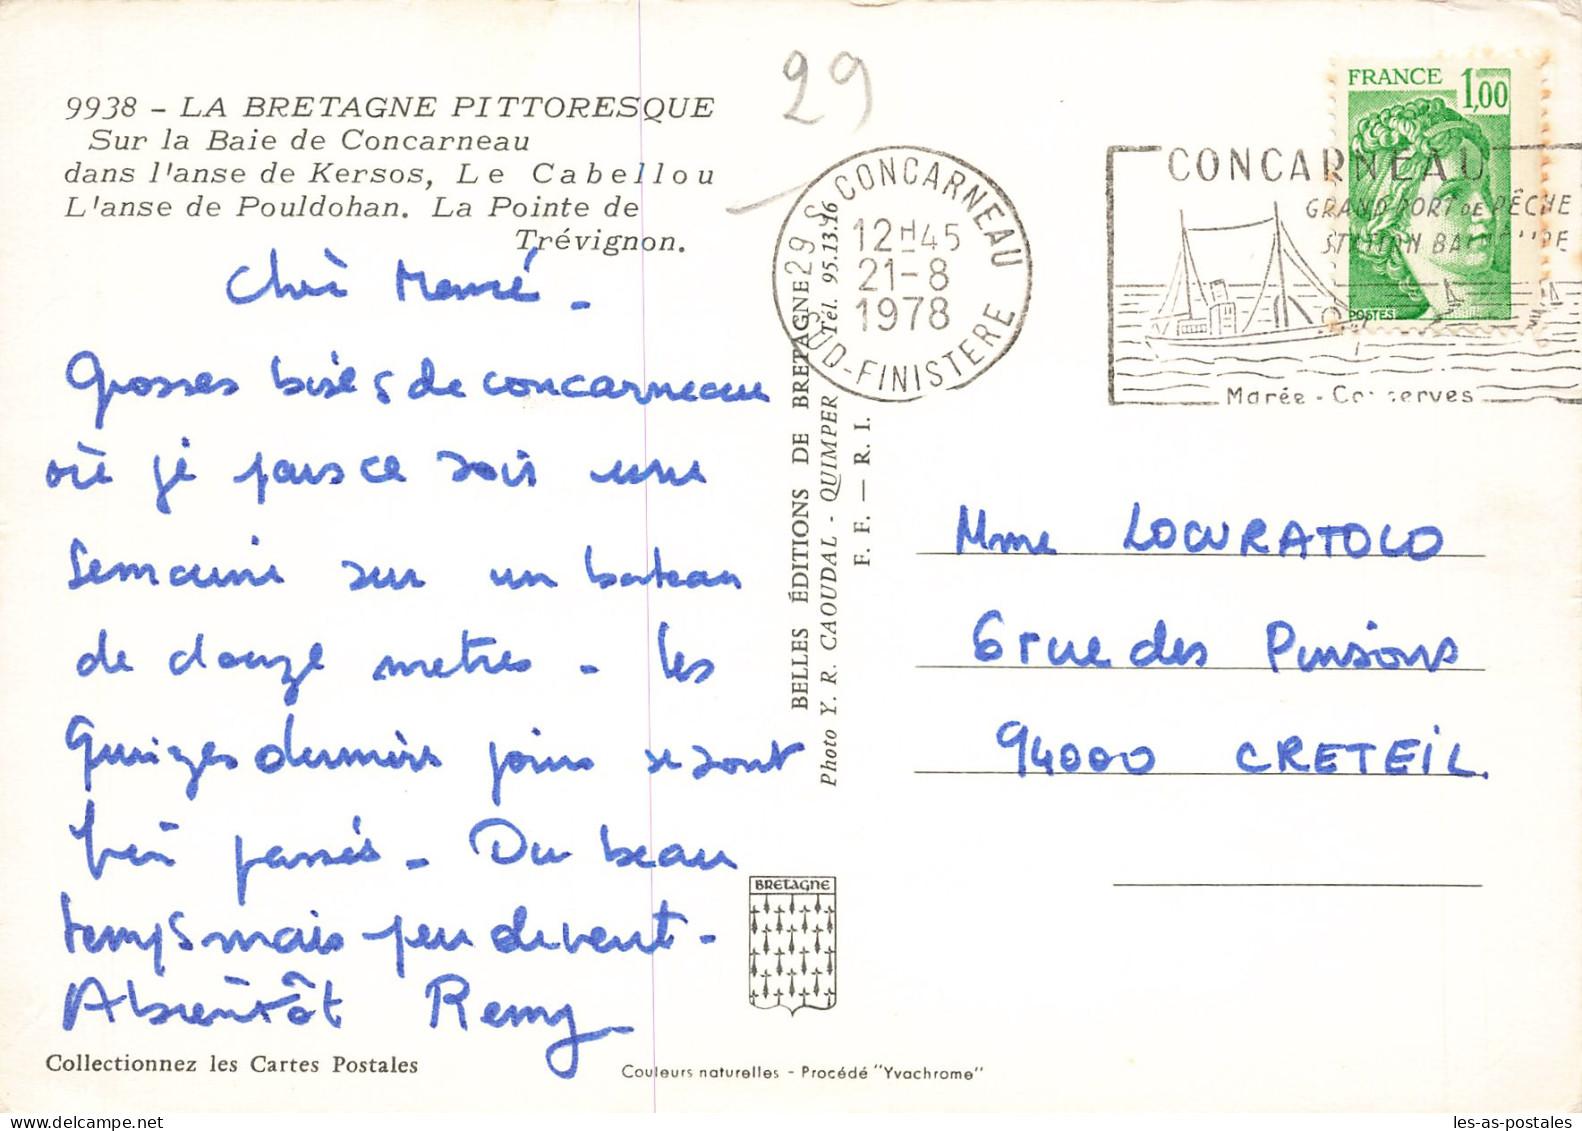 29
9938 - LA BRETAGNE PITTORESQUE
Sur la Baie de Concarneau
dans l'anse de Kersos, Le Cabellou
L'anse de Pouldohan. La Pointe de
Trévignon.
Grosses bises de concarneau
où je pars ce soir une
Semaine sur un bateau
de douze metres - les
Quinzes derniers jours se sont
bien passés - Du beau
temps mais peu de vent -
A bientôt Remy
Collectionnez les Cartes Postales
Couleurs naturelles - Procédé "Yvachrome"
BRETAGNE
BELLES ÉDITIONS DE BRETAGNE
Photo Y. R. CAOUDAL - QUIMPER Tél. 95.13.16
F. F. — R. I.
29 S CONCARNEAU
12H45
21-8
1978
SUD-FINISTERE
CONCARNEAU
GRAND PORT DE PÊCHE
STATION BALNÉAIRE
Marée - Conserves
FRANCE 1,00
POSTES
Mme LOCURATOLO
6 rue des Pinsons
94000 CRETEIL.
les-as-postales